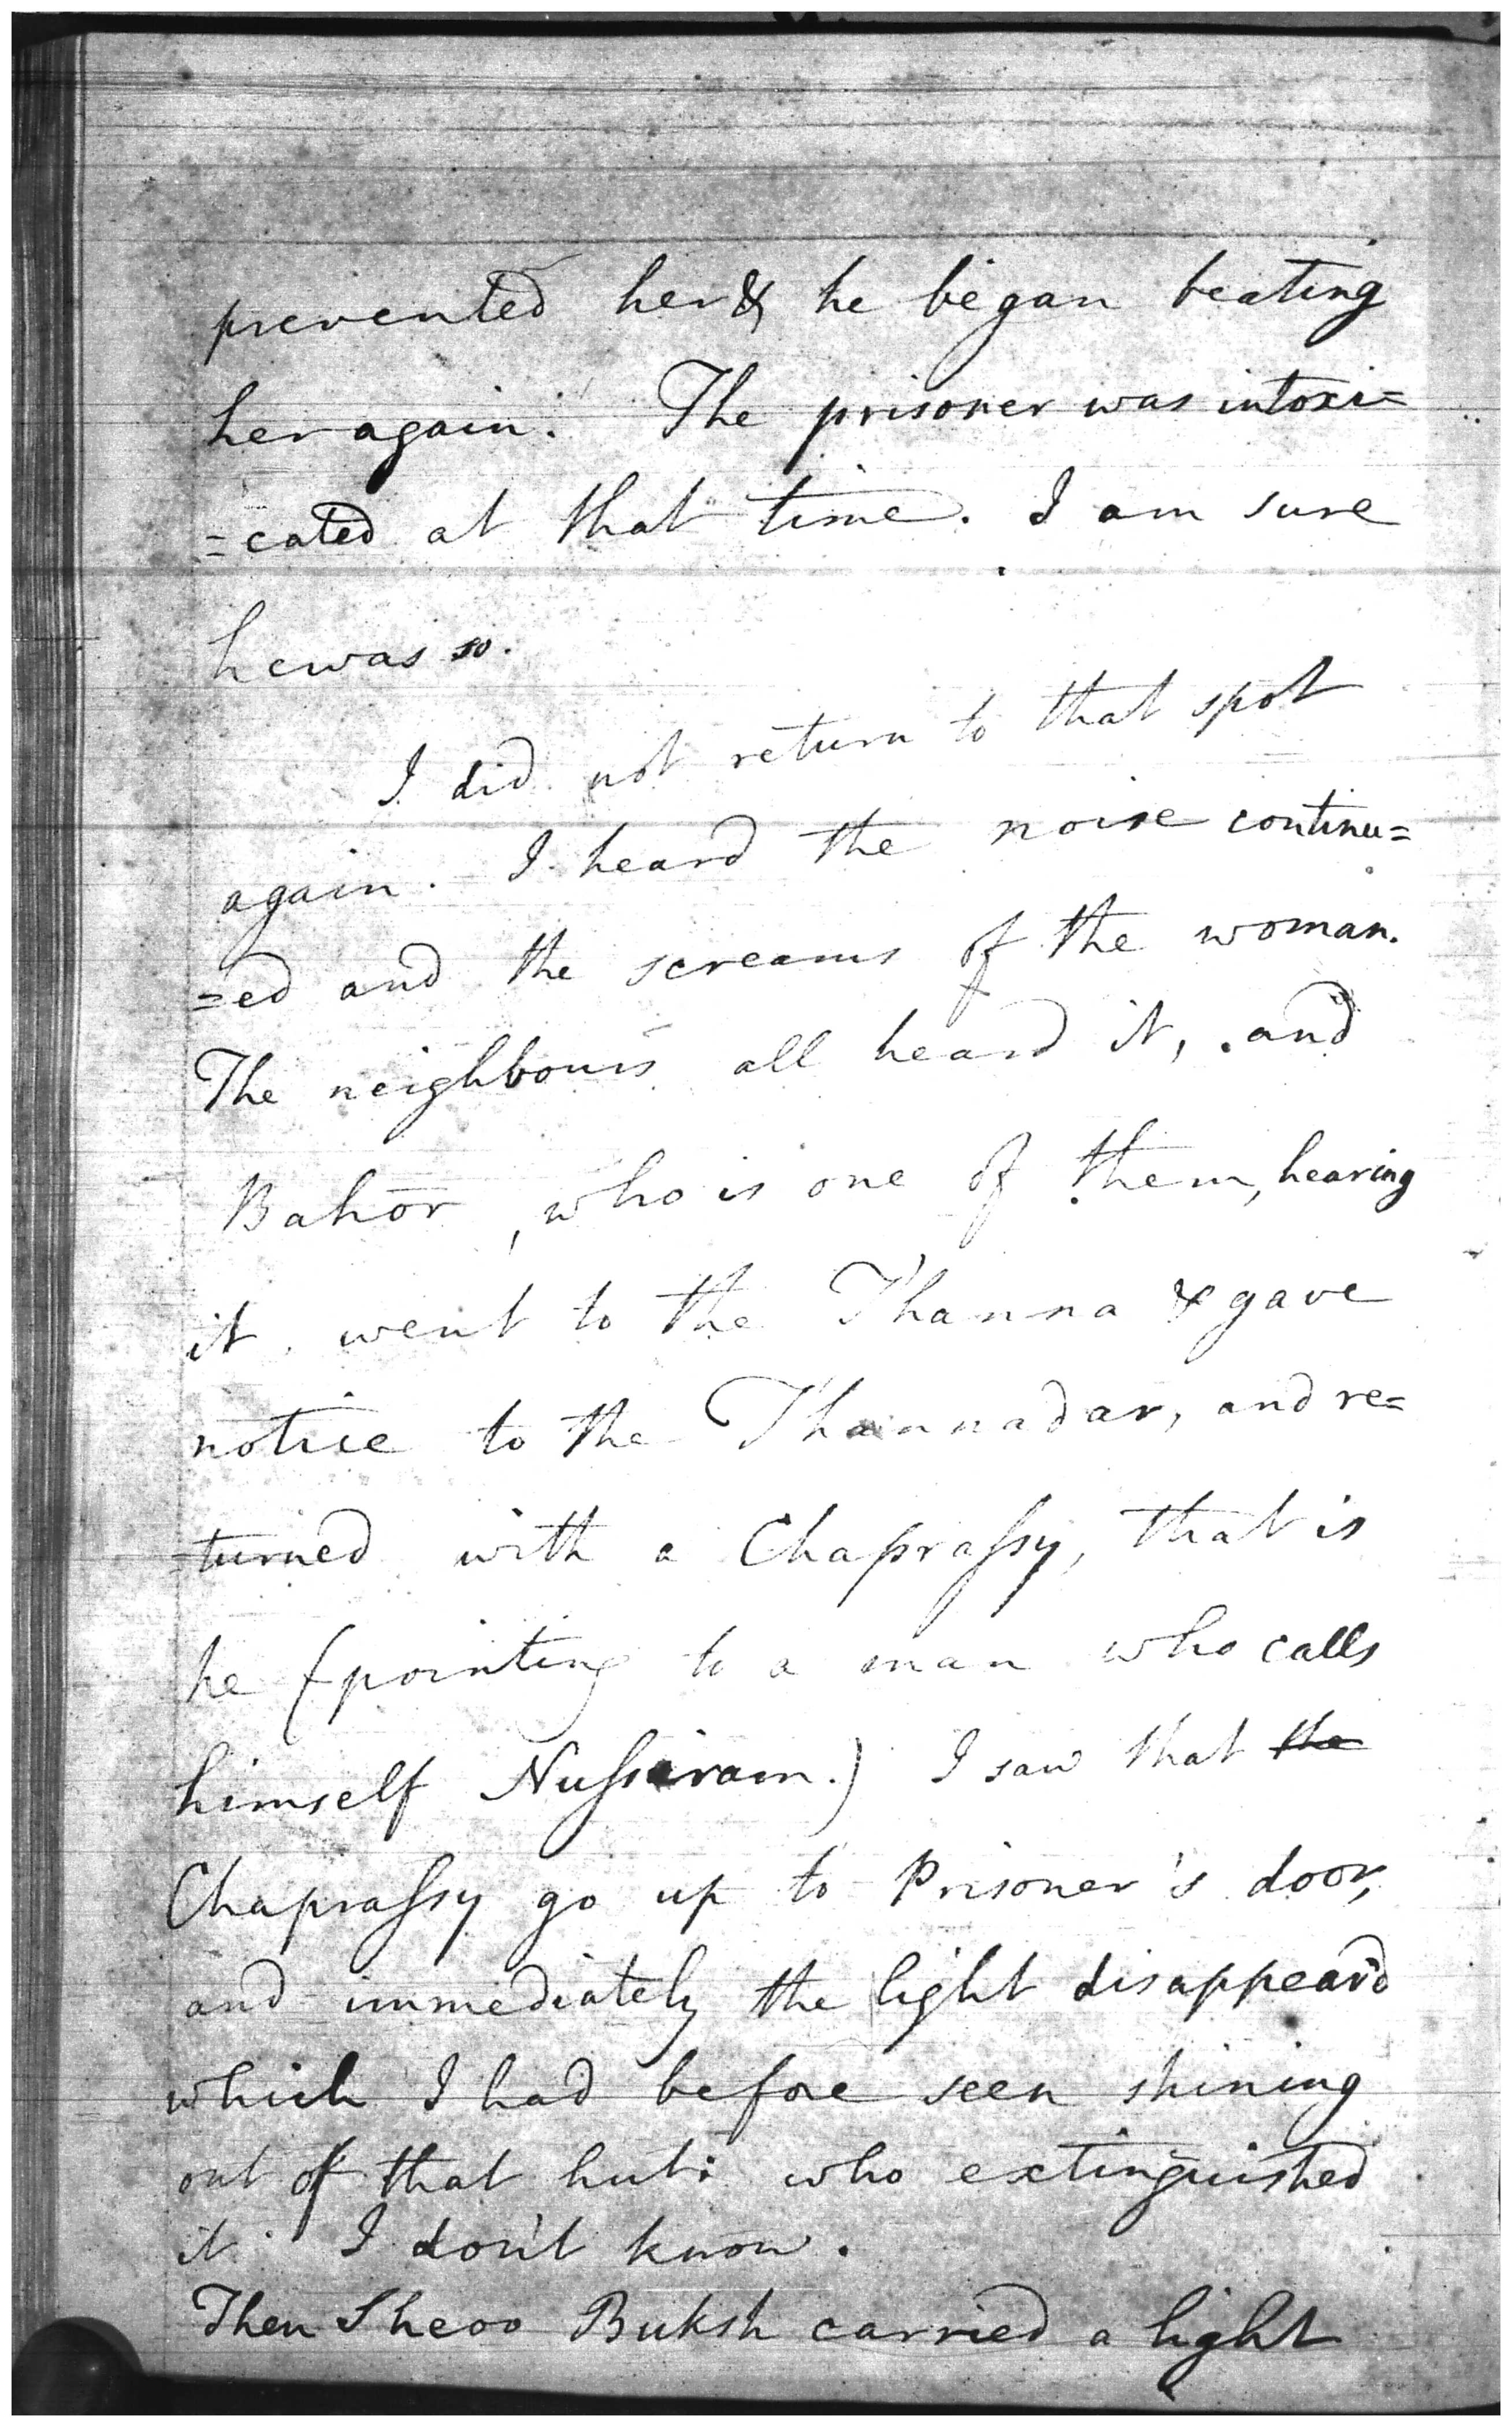 prevented her & he began beating
her again. The prisoner was intoxi=
=cated at that time. I am sure
he was so.
I did not return to that spot
again. I heard the noise continu=
=ed and the screams of the woman.
The neighbours all heard it, and
Bahor, who is one of them, hearing
it went to the Thanna & gave
notice to the Thannadar, and re=
=turned with a Chaprassy, that is
he (pointing to a man who calls
himself Nusseram.) I saw that the
Chaprassy go up to Prisoner's door,
and immediately the light disappear'd
which I had before seen shining
out of that hut: who extinguished
it I don't know.
Then Sheoo Buksh carried a light